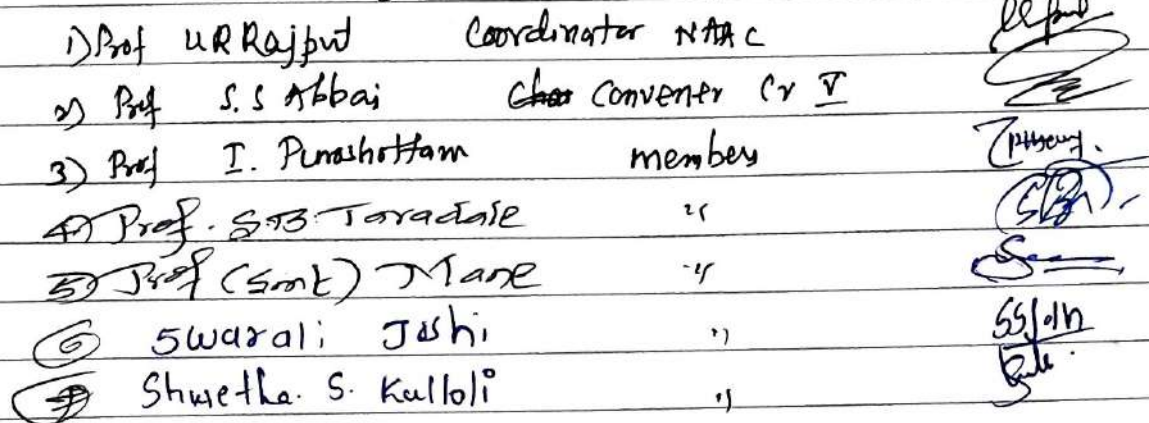 1) Prof U R Rajput Coordinator NAAC
2) Prof S. S Abbai Convener Cr V
3) Prof I. Purushottam members
4) Prof. S B Taradale "
5) Prof (Smt) Mane "
6 Swarali Joshi "
7 Shwetha. S. Kulloli "